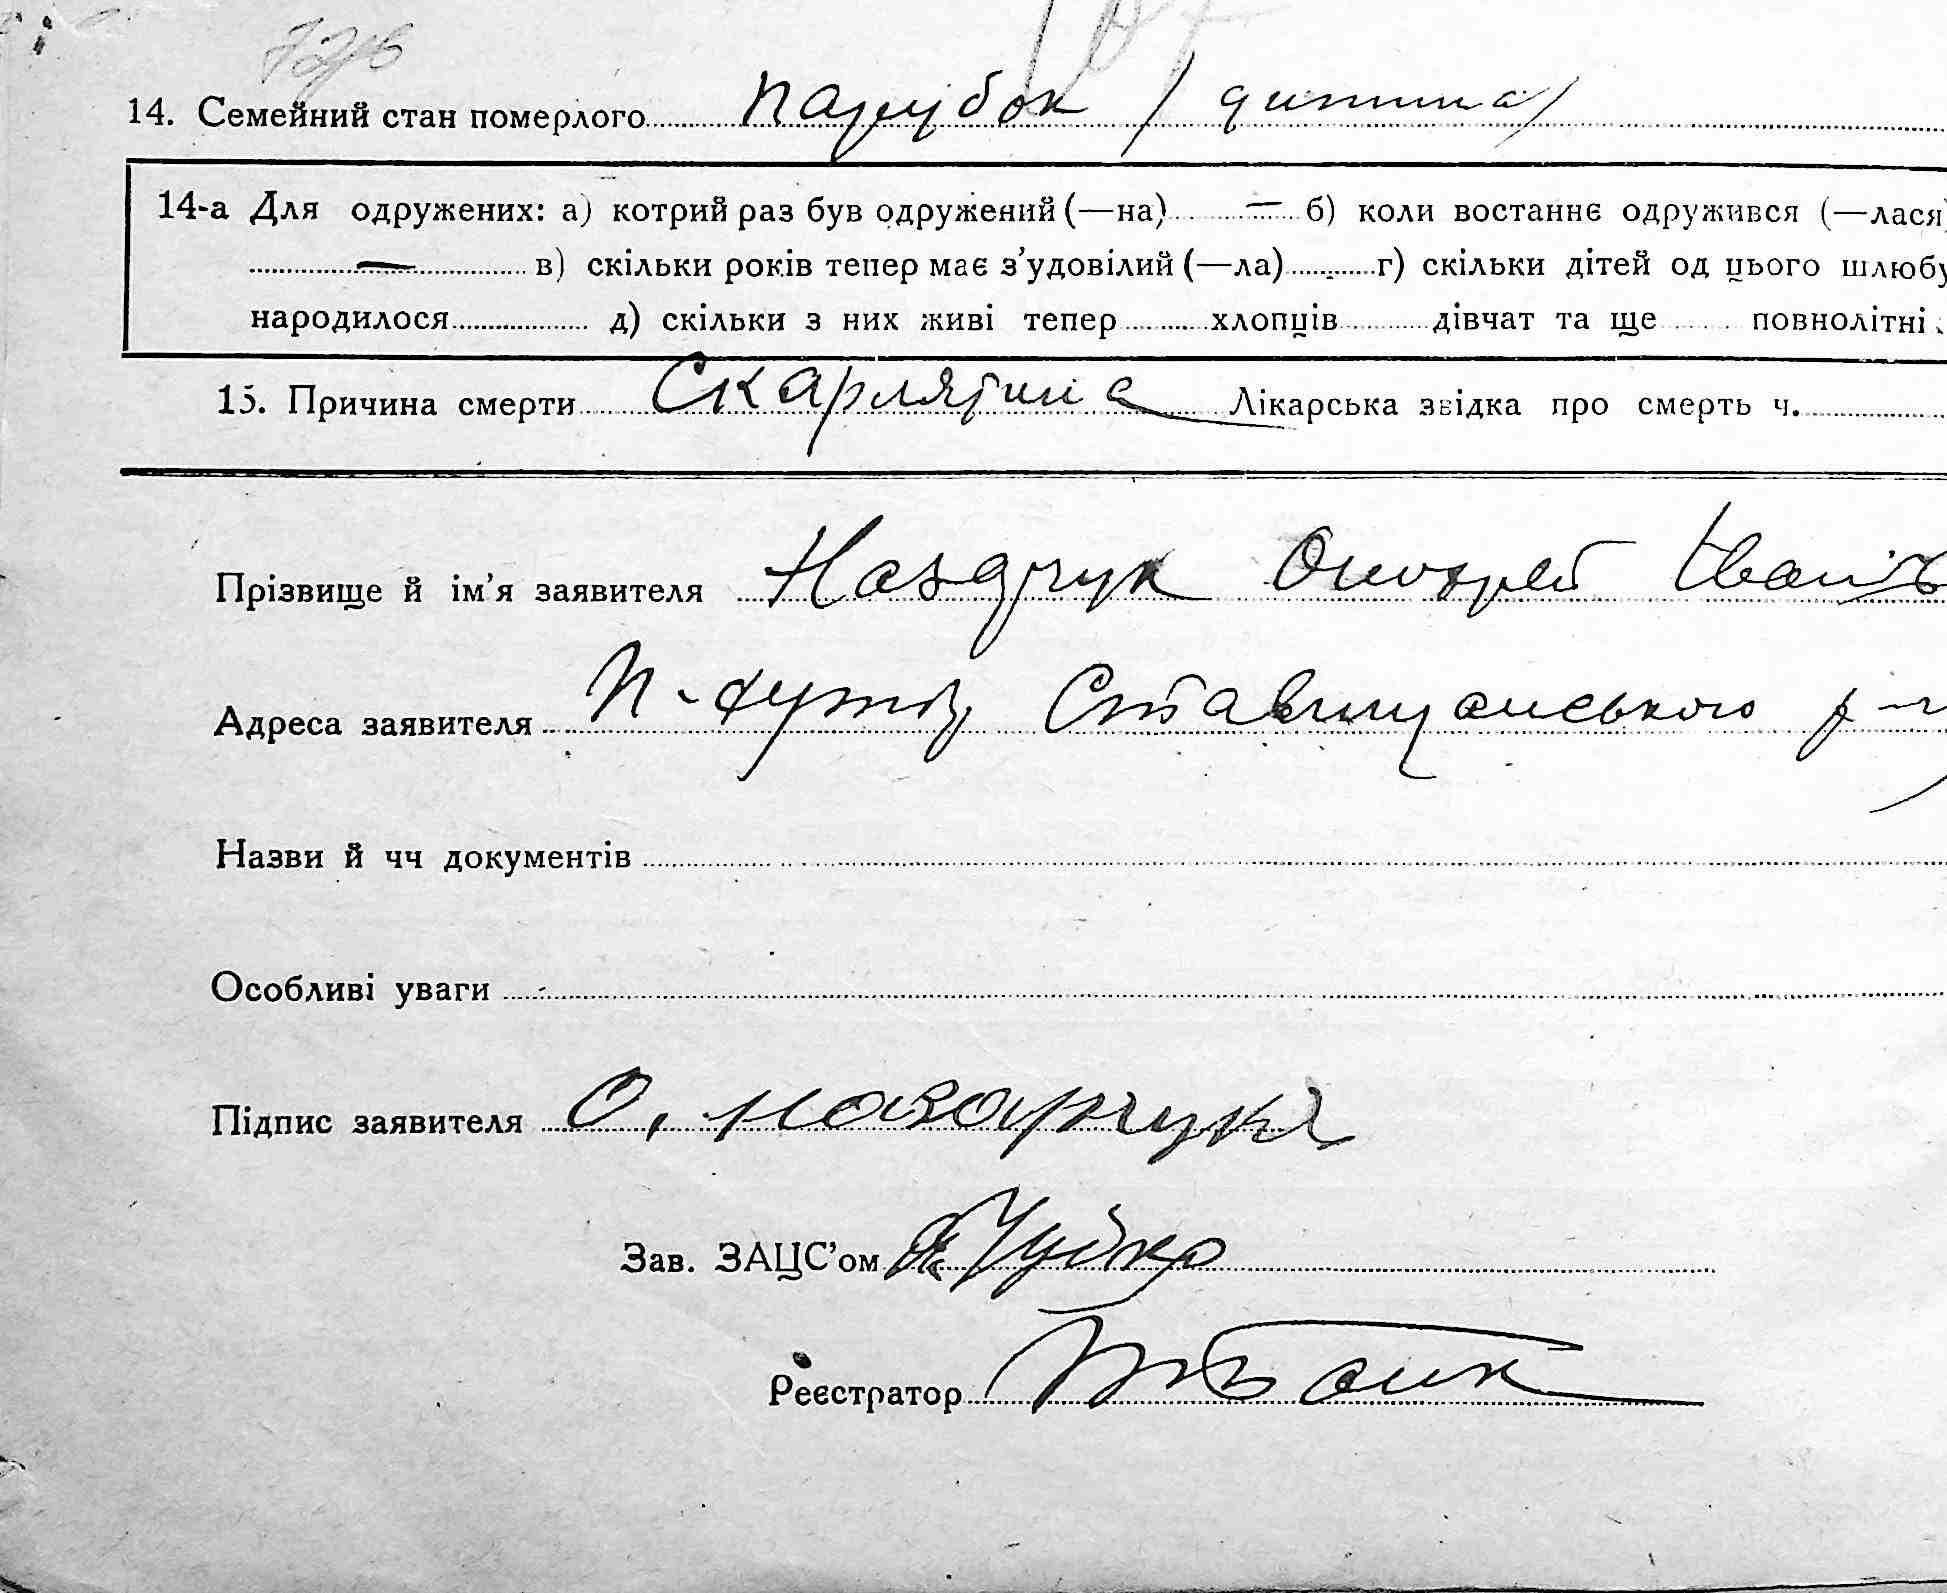 14. Семейний стан померлого парубок (дитина)
14-а Для одружених: а) котрий раз був одружений (—на) — б) коли востаннє одружився (—лася)
— в) скільки років тепер має з'удовілий (—ла) г) скільки дітей од цього шлюбу
народилося д) скільки з них живі тепер хлопців дівчат та ще повнолітні
15. Причина смерти Скарлятина Лікарська звідка про смерть ч.
Прізвище й ім'я заявителя Назарчук Іван
Адреса заявителя Ставищанського р-ну
Назви й чч документів
Особливі уваги
Підпис заявителя О. Назарчук
Зав. ЗАЦС'ом Чуйко
Реєстратор